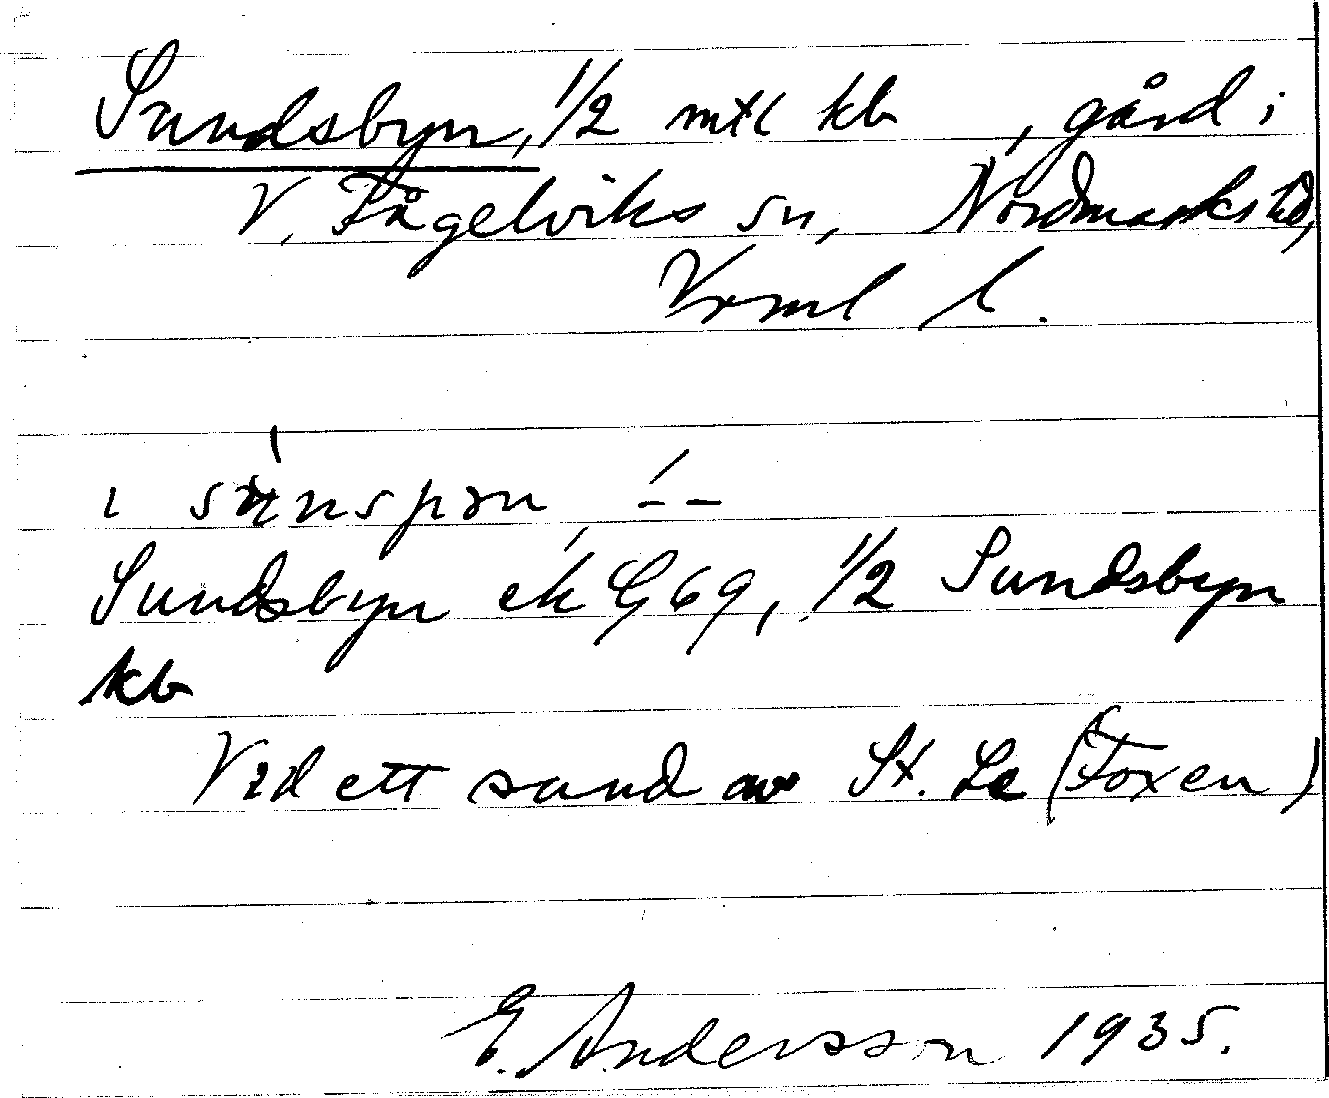 Sundsbyn, 1/2 mtl kb , gård i
V. Fågelviks sn, Nordmarks hd,
Vrml l.
Sundsbyn ek G69, 1/2 Sundsbyn
kb
Vid ett sund av St. Le (Foxen)
E. Andersson 1935.